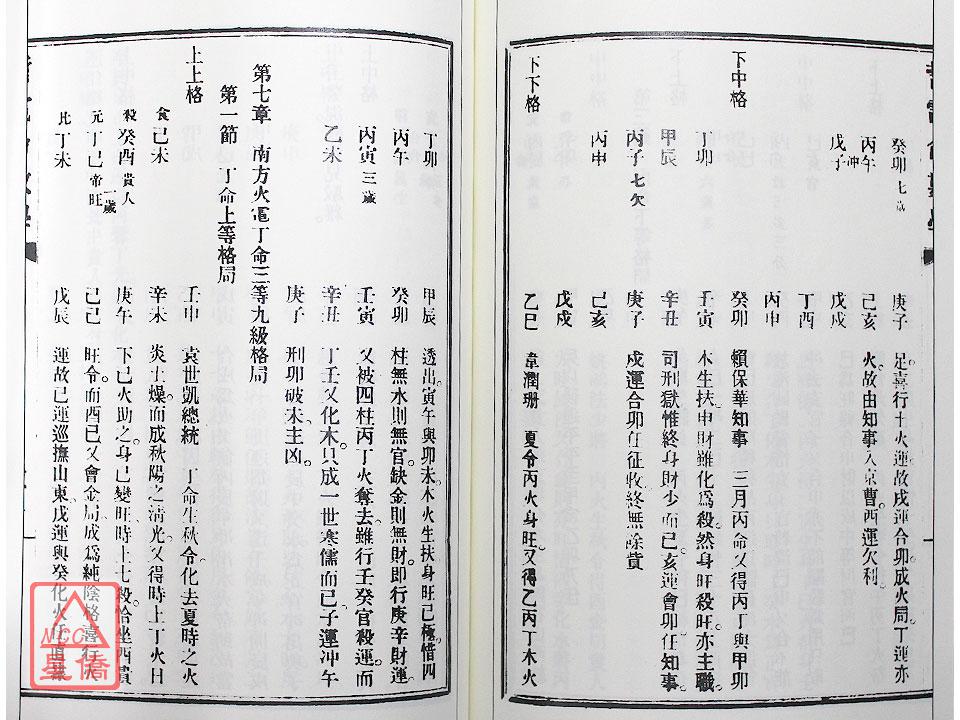 癸卯 七歲 庚子 足。喜行土火運。故戌運合卯。成火局。丁運亦
丙午 沖 己亥 火。故由知事入京曹。酉運欠利。
戊子 戊戌
丁酉
丙申
下中格 癸卯 賴保華知事 三月丙命又得丙丁與甲卯
丁卯 壬寅 木生扶。申財雖化爲殺。然身旺殺旺。亦主職
甲辰 辛丑 司刑獄。惟終身財少而已。亥運會卯。任知事。
丙子 七欠 庚子 戌運合卯。任征收。終無餘貲
丙申 己亥
戊戌
下下格 乙巳 韋潤珊 夏令丙火身旺。又得乙丙丁木火
丁卯 甲辰 透出。寅午與卯未。木火生扶身旺已極。惜四
丙午 癸卯 柱無水則無官。缺金則無財。即行庚辛財運。
丙寅 三歲 壬寅 又被四柱丙丁火奪去。雖行壬癸官殺運。而
乙未 辛丑 丁壬又化木。只成一世寒儒而已。子運沖午
庚子 刑卯破未。主凶。
第七章 南方火電丁命三等九級格局
第一節 丁命上等格局
上上格 壬申 袁世凱總統 丁命生秋令。化去夏時之火
食 己未 辛未 炎土燥。而成秋陽之清光。又得時上丁火日
殺 癸酉 貴人 庚午 下己火助之。身已變旺。時上七殺。恰坐酉貴
元 丁巳 帝旺 一歲 己巳 旺令。而酉巳又會金局。成爲純陰格。喜行火
比 丁未 戊辰 運。故己運巡撫山東。戊運與癸化火。任直
NCC
星僑